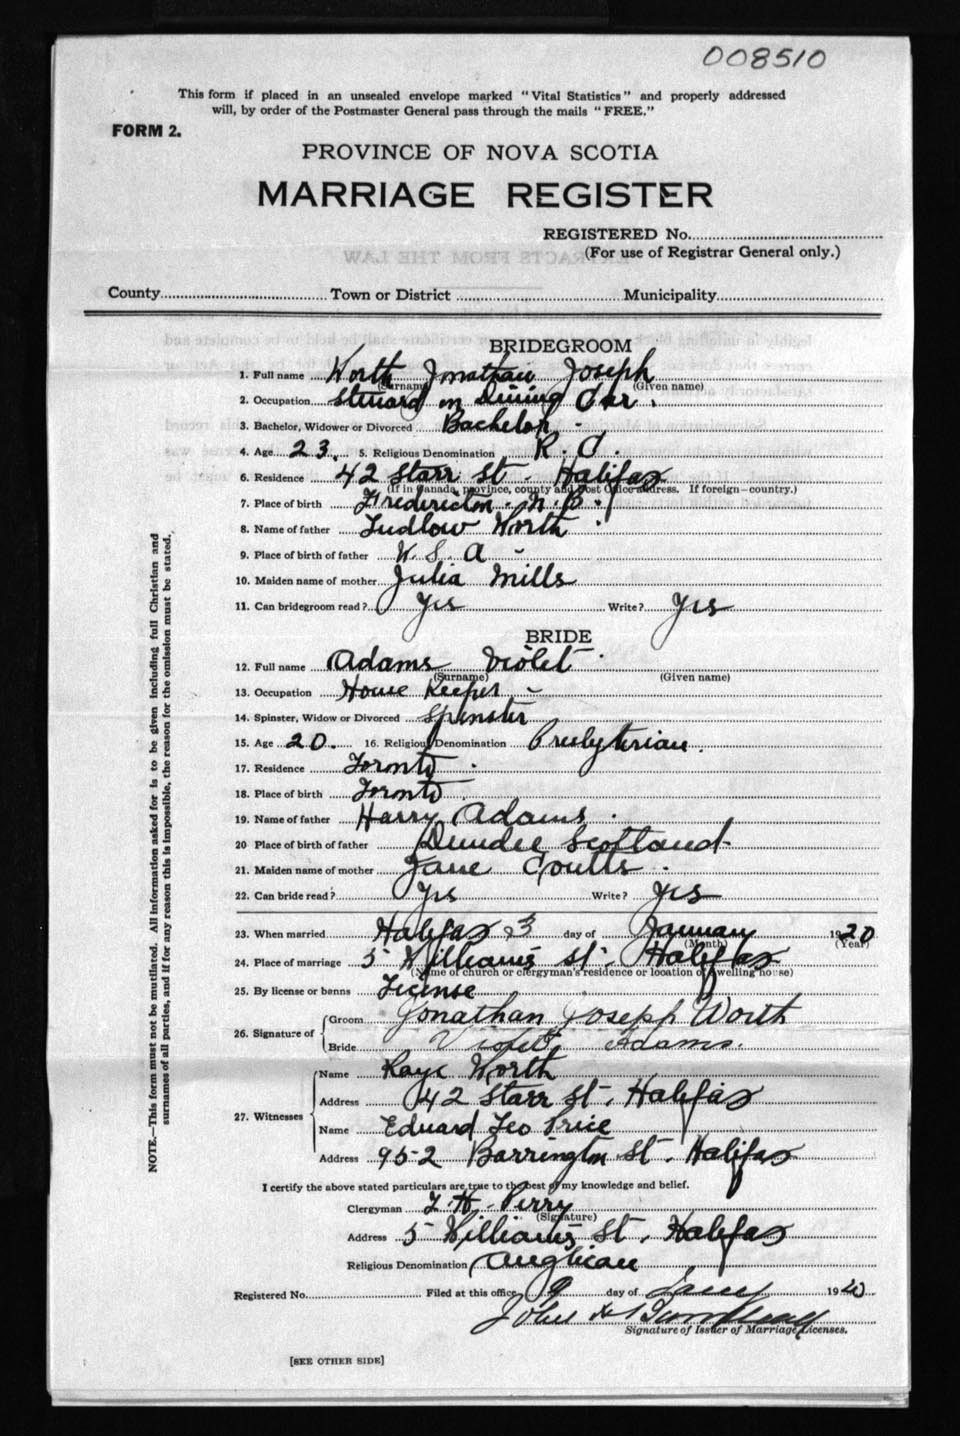 008510
This form if placed in an unsealed envelope marked "Vital Statistics" and properly addressed
will, by order of the Postmaster General pass through the mails "FREE."
FORM 2.
PROVINCE OF NOVA SCOTIA
MARRIAGE REGISTER
REGISTERED No.
(For use of Registrar General only.)
County Town or District Municipality
BRIDEGROOM
1. Full name Worth Jonathan Joseph
(Surname) (Given name)
2. Occupation Steward on Dining Car.
3. Bachelor, Widower or Divorced Bachelor
4. Age 23. 5. Religious Denomination R. C.
6. Residence 42 Starr St. Halifax
(If in Canada, province, county and Post Office address. If foreign—country.)
7. Place of birth Fredericton. N. B.
8. Name of father Ludlow Worth
9. Place of birth of father U. S. A
10. Maiden name of mother Julia Mills
11. Can bridegroom read? Yes Write? Yes
BRIDE
12. Full name Adams Violet
(Surname) (Given name)
13. Occupation House Keeper
14. Spinster, Widow or Divorced Spinster
15. Age 20. 16. Religious Denomination Presbyterian.
17. Residence Toronto
18. Place of birth Toronto
19. Name of father Harry Adams
20 Place of birth of father Dundee Scotland
21. Maiden name of mother Jane Coutts.
22. Can bride read? Yes Write? Yes
23. When married Halifax 3 day of January 1920
(Month) (Year)
24. Place of marriage 5 Williams St. Halifax
(Name of church or clergyman's residence or location of dwelling house)
25. By license or banns License
26. Signature of Groom Jonathan Joseph Worth
Bride Violet Adams.
27. Witnesses Name Kaye Worth
Address 42 Starr St. Halifax
Name Eduard Leo Price
Address 952 Barrington St. Halifax
I certify the above stated particulars are true to the best of my knowledge and belief.
Clergyman T. H. Perry
(Signature)
Address 5 Williams St. Halifax
Religious Denomination Anglican
Registered No. Filed at this office 9 day of Jany 1920
John
Signature of Issuer of Marriage Licenses.
[SEE OTHER SIDE]
NOTE.—This form must not be mutilated. All information asked for is to be given including full Christian and
surnames of all parties, and if for any reason this is impossible, the reason for the omission must be stated.